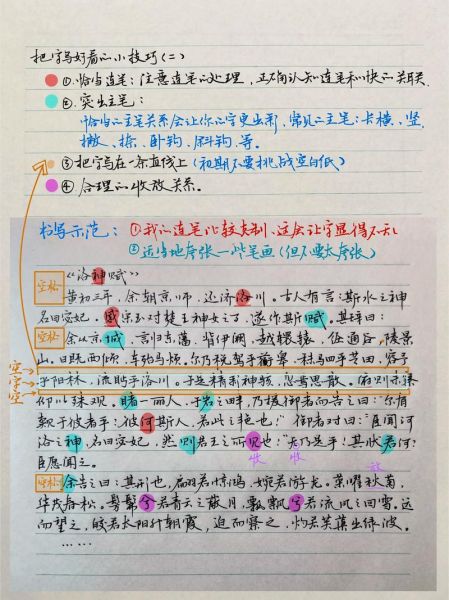 把字写好看的小技巧(二)
①恰当连笔:注意连笔的处理,正确认知连笔和快的关联
②突出主笔:
恰当的主笔关系会让你的字更出彩,常见的主笔:长横、竖、
撇、捺、卧钩、斜钩、等。
③把字写在一条直线上(初期不要挑战空白纸)
④合理的收放关系。
书写示范: ①我的连笔比较克制,这会让字显得不乱
②适当地夸张一些笔画(但不要太夸张)
空格 《洛神赋》
黄初三年,余朝京师,还济洛川。古人有言:斯水之神
名曰宓妃。感宋玉对楚王神女之事,遂作斯赋。其辞曰:
空格 余从京域,言归东藩,背伊阙,越轘辕,经通谷,陵景
山。日既西倾,车殆马烦。尔乃税驾乎蘅皋,秣驷乎芝田,容与
空字空 乎阳林,流眄乎洛川。于是精移神骇,忽焉思散。俯则未察
仰以殊观。睹一丽人,于岩之畔,乃援御者而告之曰:“尔有
觌于彼者乎?彼何斯人,若此之艳也!”御者对曰:“臣闻河
洛之神,名曰宓妃,然则君王之所见也,无乃是乎!其状若何?
收 收 放
臣愿闻之。
空格 余告之曰:其形也,翩若惊鸿,婉若游龙。荣曜秋菊,
华茂春松。髣髴兮若轻云之蔽月,飘飖兮若流风之回雪。远
而望之,皎若太阳升朝霞,迫而察之,灼若芙蕖出渌波。
……